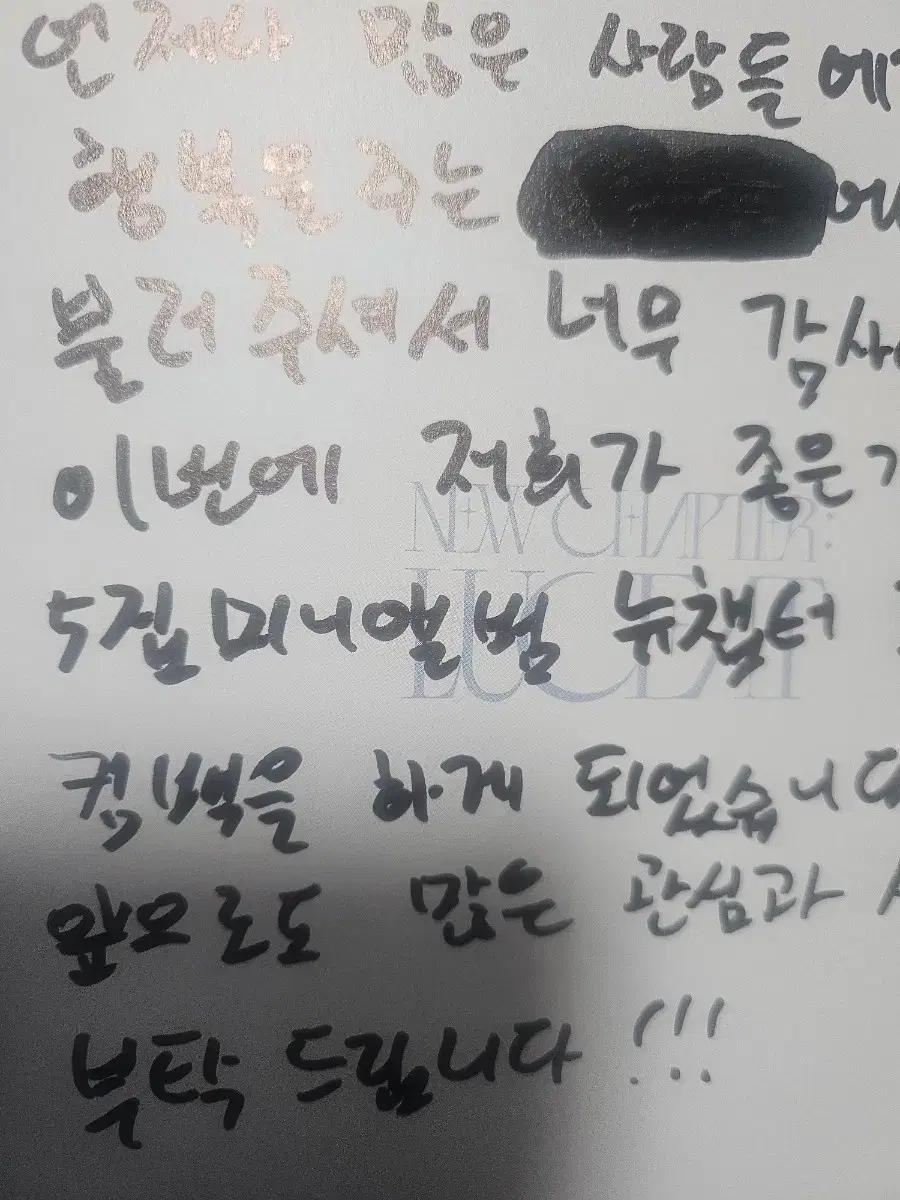 언제나 많은 사람들에
행복을 주는 에
불러주셔서 너무 감사
이번에 저희가 좋은
NEW CHAPTER:
LUCEAT
5집 미니앨범 뉴챕터
컴백을 하게 되었습니다
앞으로도 많은 관심과
부탁 드립니다!!!